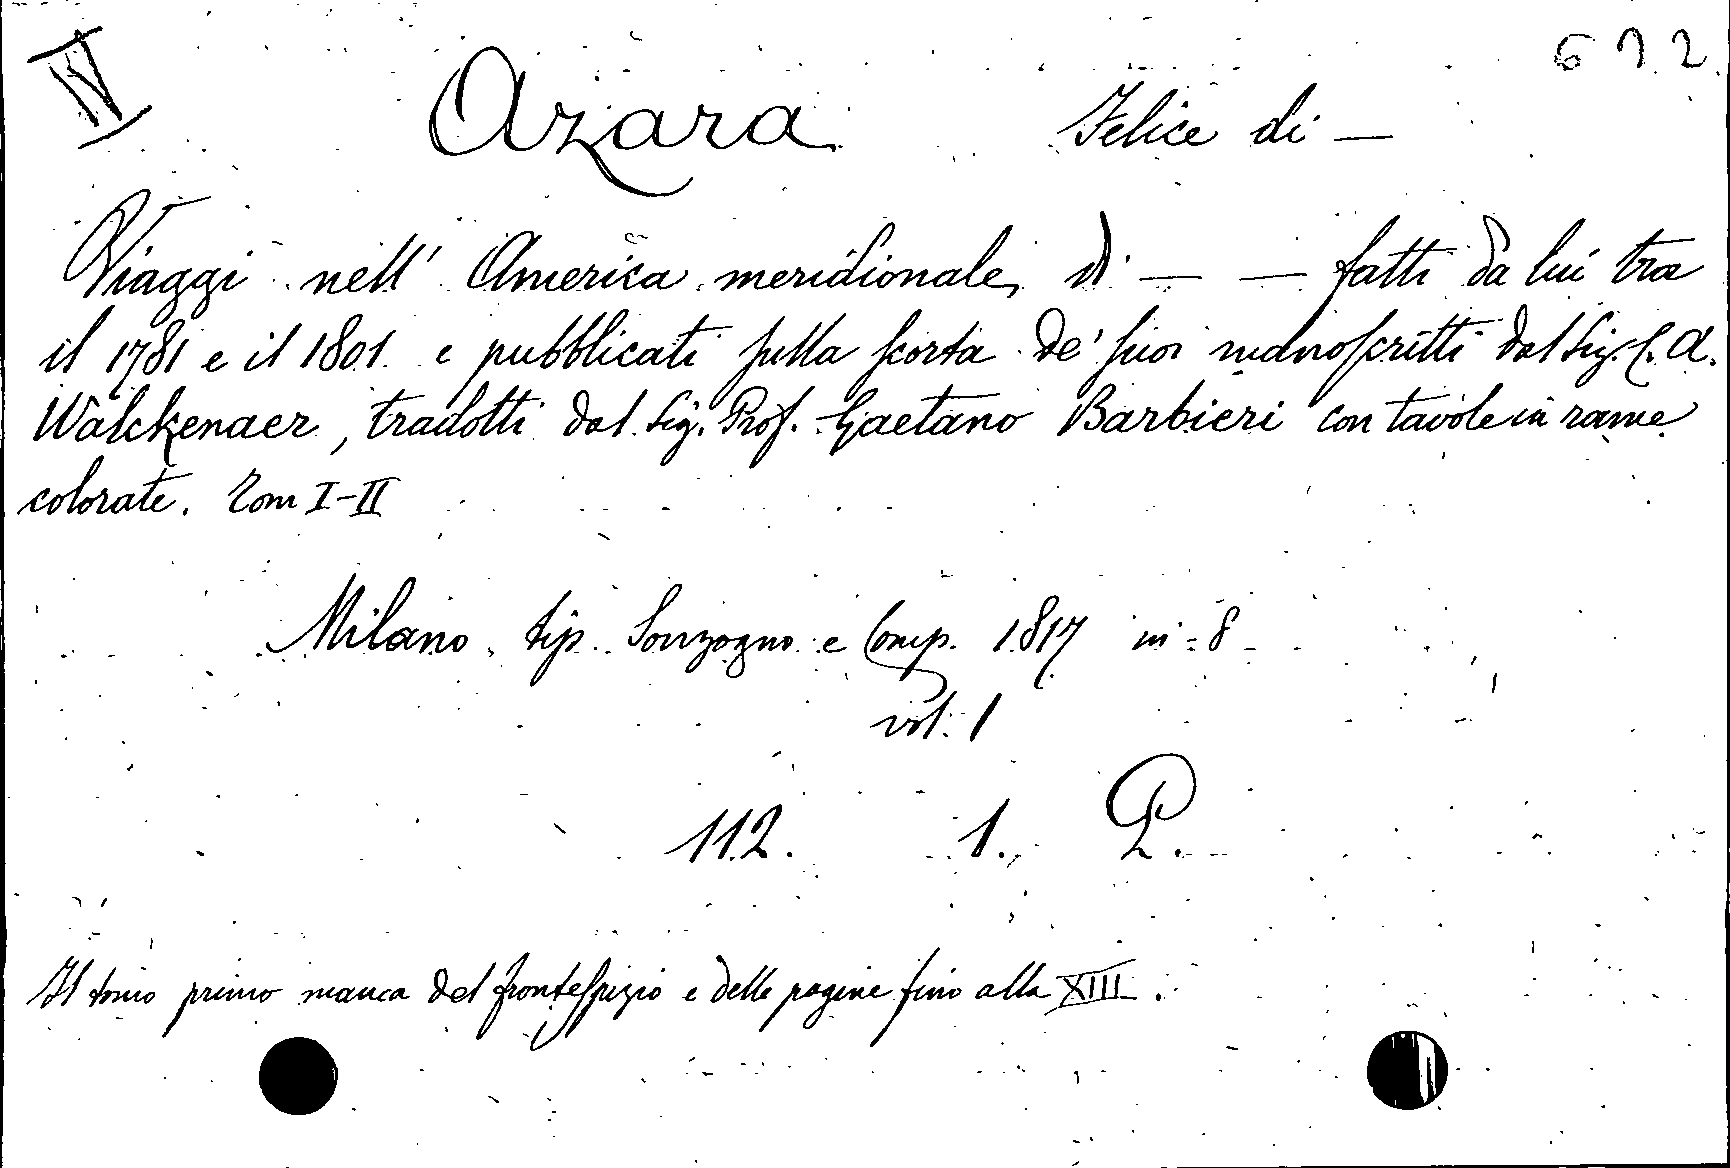 IV
692
Azara Felice di —
Viaggi nell' America meridionale, di — — fatti da lui tra
il 1781 e il 1801 e pubblicati sulla scorta de' suoi manoscritti dal Sig. C. A.
Walckenaer, tradotti dal Sig. Prof. Gaetano Barbieri con tavole in rame
colorate. Tom I-II
Milano, tip. Sonzogno e Comp. 1817 in-8
vol. 1
112. 1. P.
Il tomo primo manca del frontespizio e delle pagine fino alla XIII.